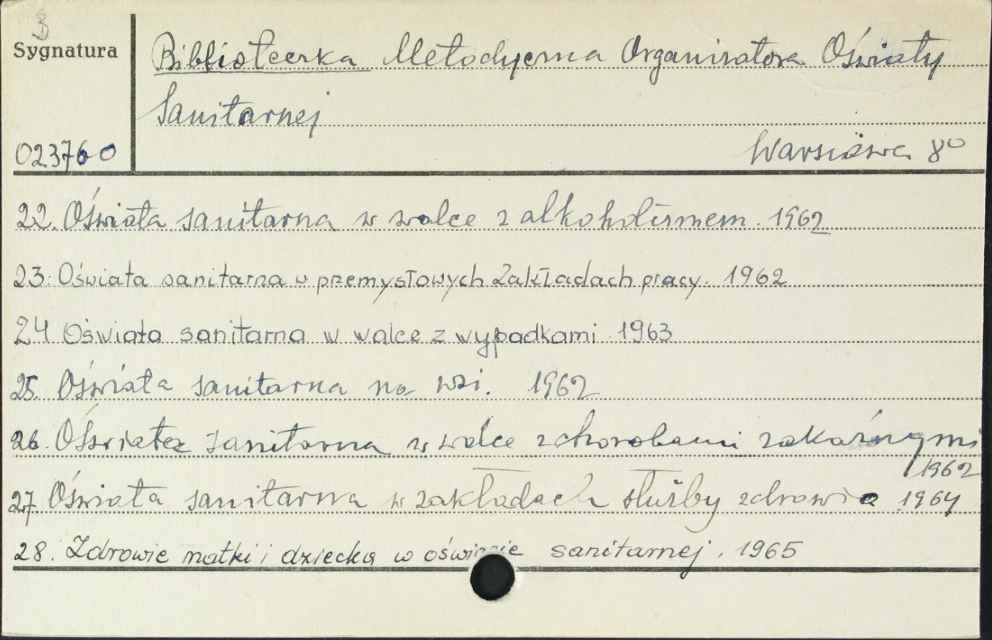 3
Sygnatura
Biblioteczka Metodyczna Organizatora Oświaty
Sanitarnej
023760
Warszawa 8°
22. Oświata sanitarna w walce z alkoholizmem. 1962
23. Oświata sanitarna w przemysłowych zakładach pracy. 1962
24 Oświata sanitarna w walce z wypadkami 1963
25. Oświata sanitarna na wsi. 1962
26. Oświata sanitarna w walce z chorobami zakaźnymi
1962
27 Oświata sanitarna w zakładach służby zdrowia 1964
28. Zdrowie matki i dziecka w oświacie sanitarnej. 1965